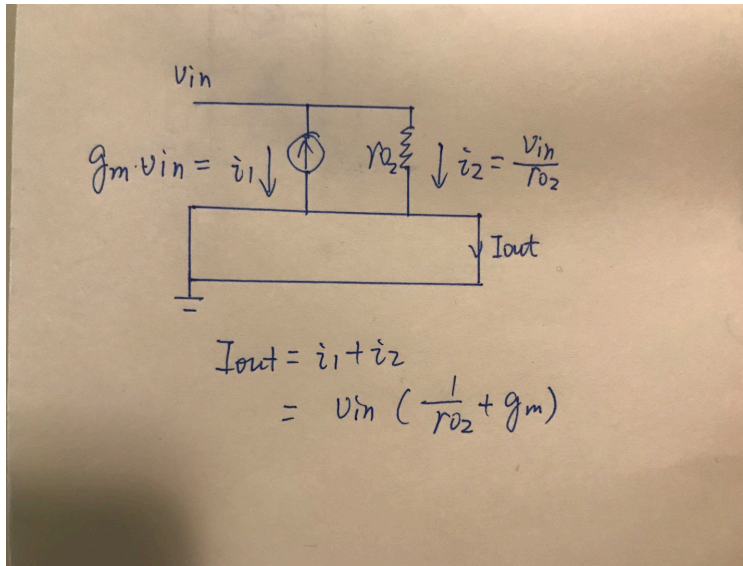 Vin
gm·Vin = i1
ro2
i2 = Vin/ro2
Iout
Iout = i1 + i2
= Vin ( 1/ro2 + gm )